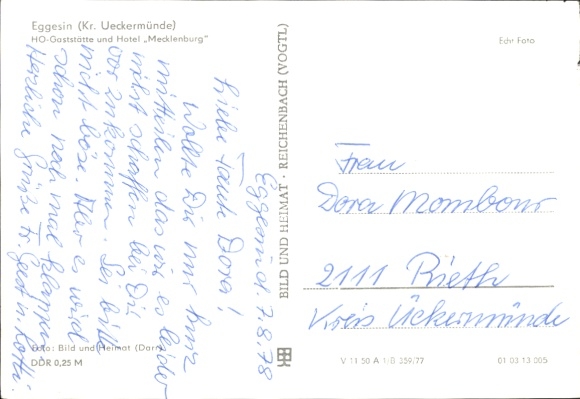 Eggesin (Kr. Ueckermünde)
HO-Gaststätte und Hotel „Mecklenburg"
Eggesin d. 7.8.78
Liebe Tante Dora!
Wollte Dir nur kurz
mitteilen das wir es leider
nicht schaffen bei Dir
vorzukommen. Sei bitte
nicht böse. Aber es wird
schon noch mal klappen
Herzliche Grüße Fr. Gert u. Lotti.
Foto: Bild und Heimat (Dorr)
DDR 0,25 M
BILD UND HEIMAT · REICHENBACH (VOGTL)
Echt Foto
Frau
Dora Mombour
2111 Rieth
Kreis Ückermünde
V 11 50 A 1/B 359/77
01 03 13 005